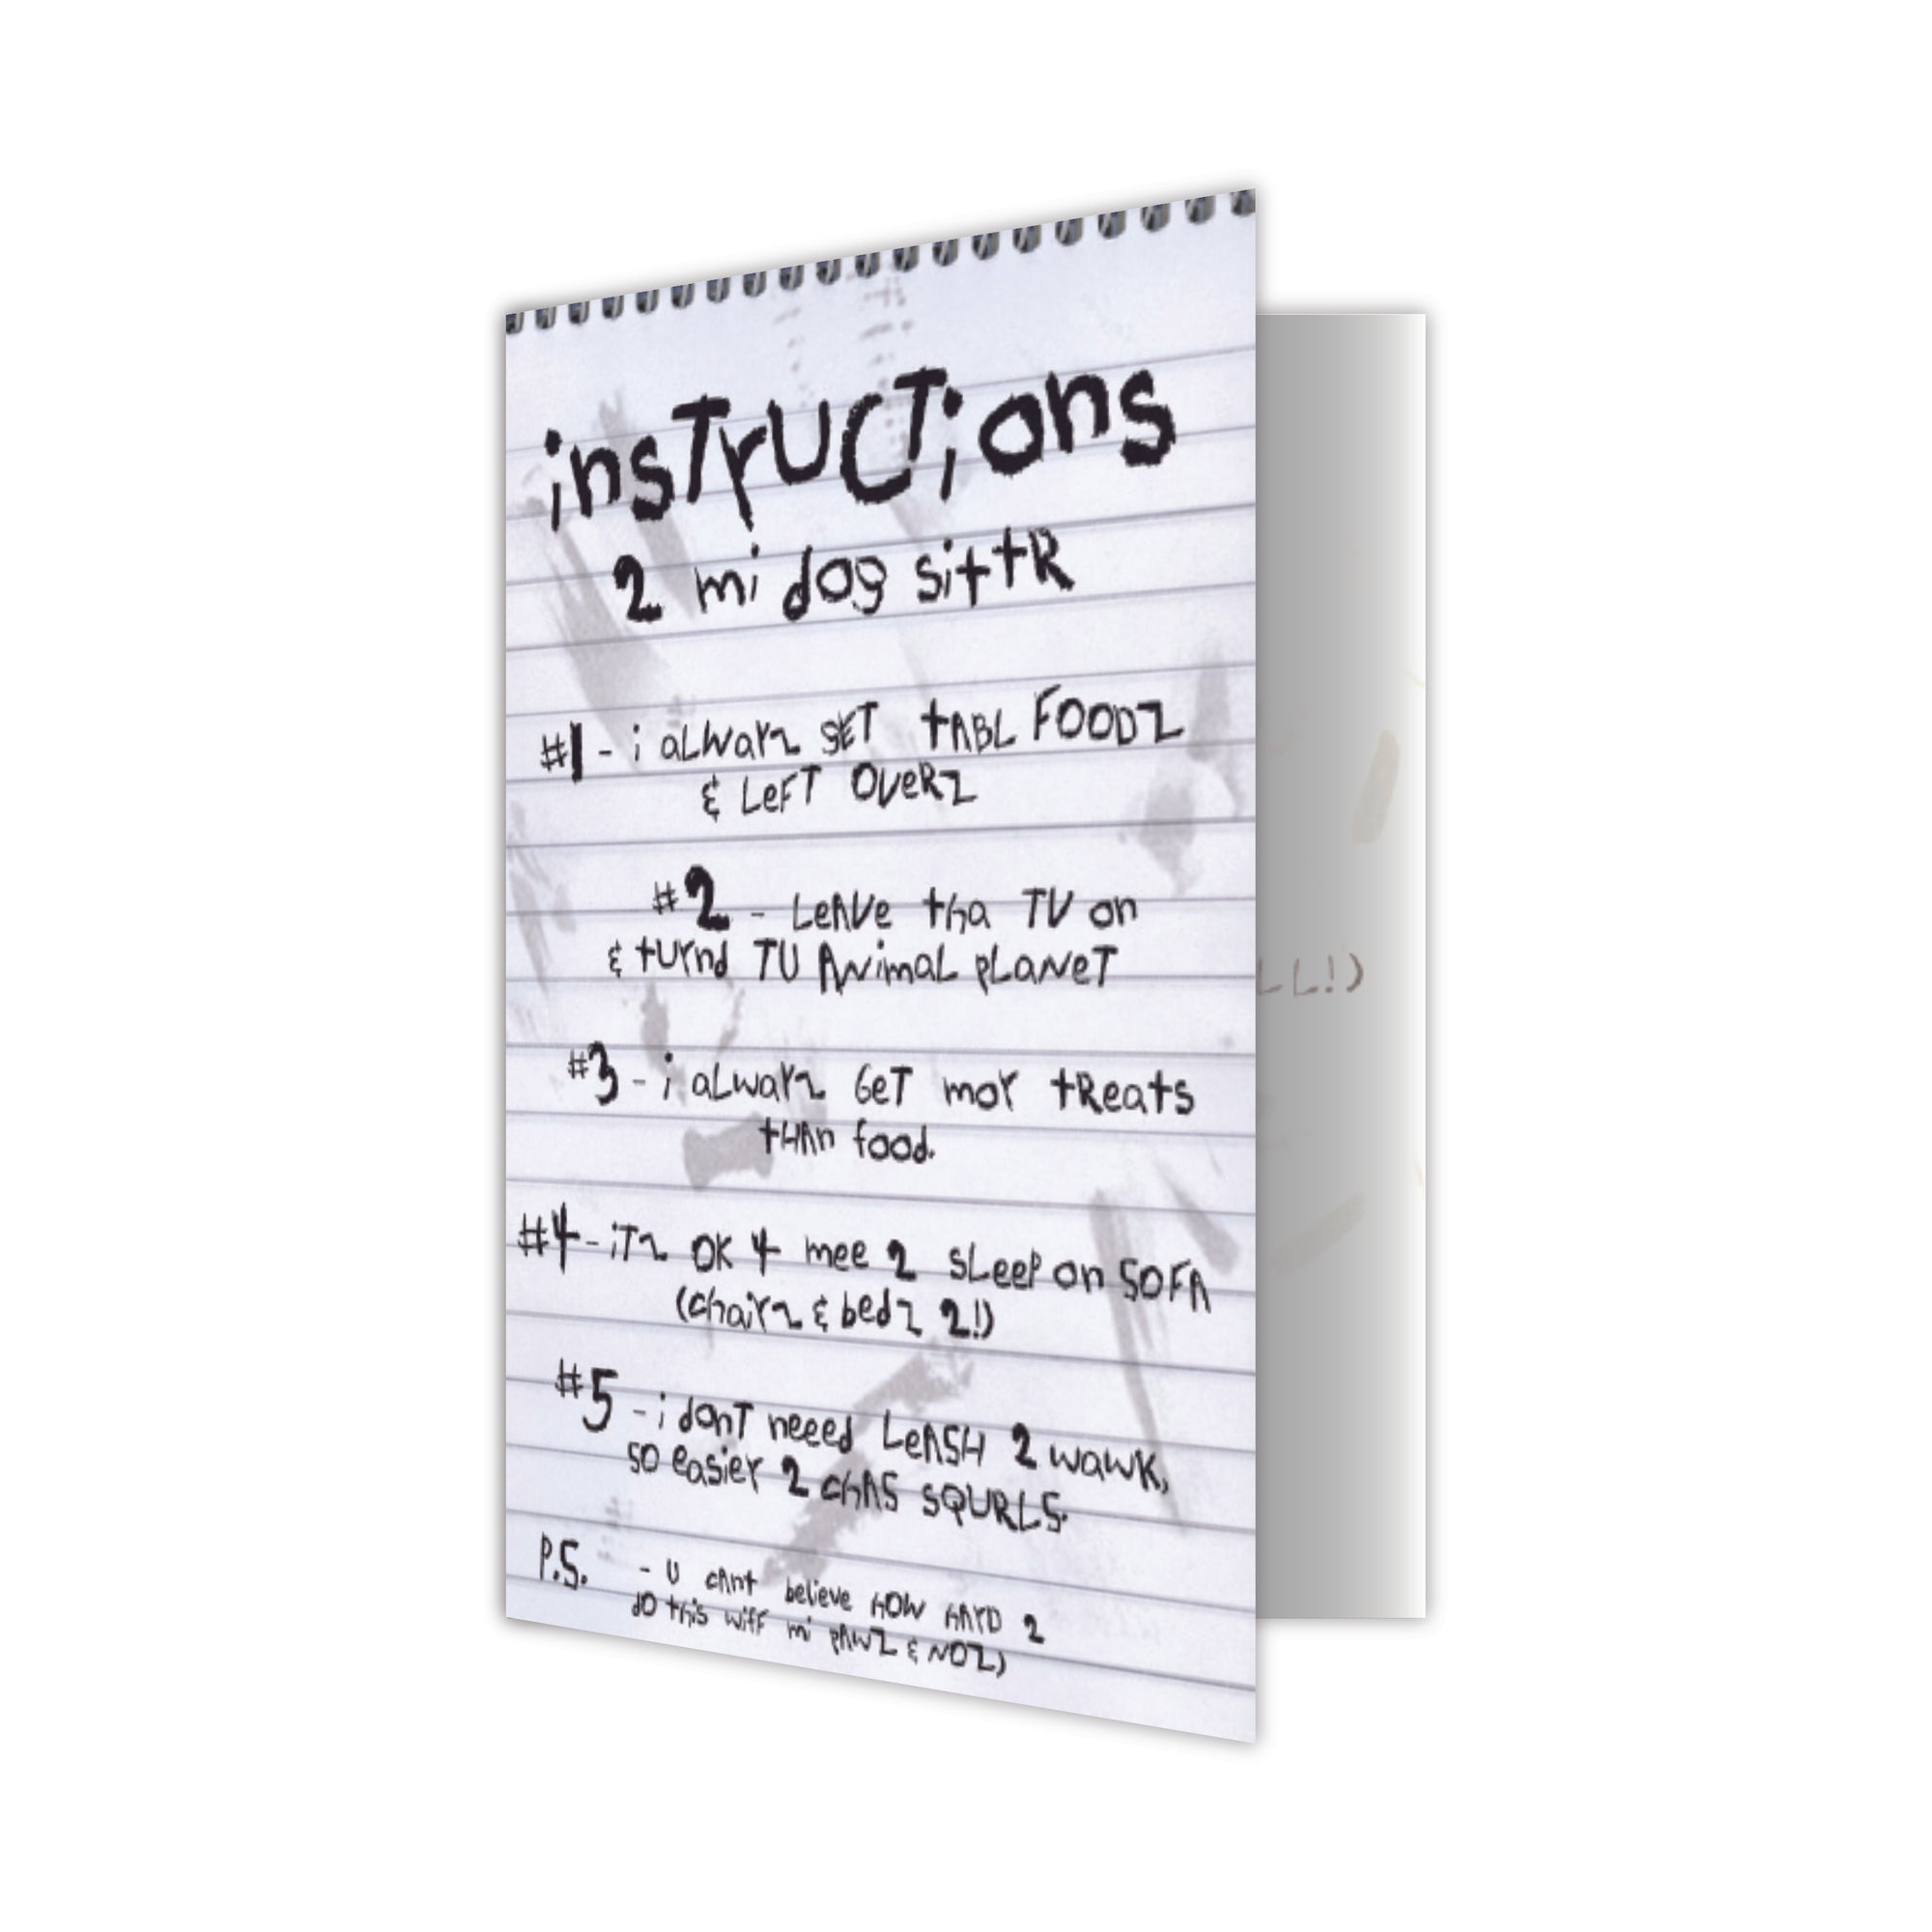 insTrUCTions
2 mi dog sittR
#1 - i aLWarz SET tABL FOODZ
& LeFT OVeRZ
#2 - LeAVe tha TV on
& tUrnd TU ANimaL pLaNeT
#3 - i aLwarz GeT mor tReats
tHAn food.
#4 - iTz OK 4 mee 2 sLeep on SOFA
(chairz & bedz 2!)
#5 - i donT neeed LeASH 2 wawk,
so easier 2 chAS sQURLS.
P.S. - U cAnt believe hOW hArD 2
dO this wiff mi pAWZ & NOZ)
LL!)